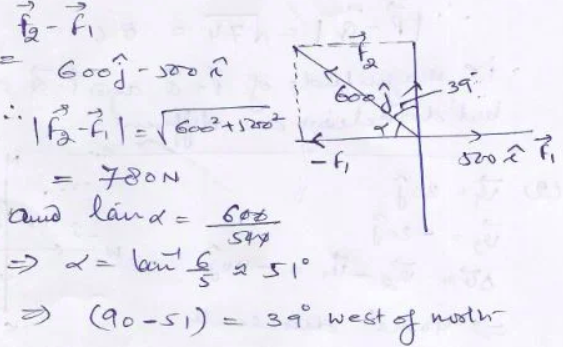 $\vec{f}_2 - \vec{f}_1$
= 600ĵ - 500 î
∴ $|\vec{f}_2 - \vec{f}_1| = \sqrt{600^2 + 500^2}$
= 780N
and tan α = $\frac{600}{500}$
⇒ α = tan⁻¹ $\frac{6}{5}$ ≈ 51°
⇒ (90-51) = 39° west of north
$\vec{f}_2$
600ĵ
39°
α
-f₁
500 î
$\vec{f}_1$